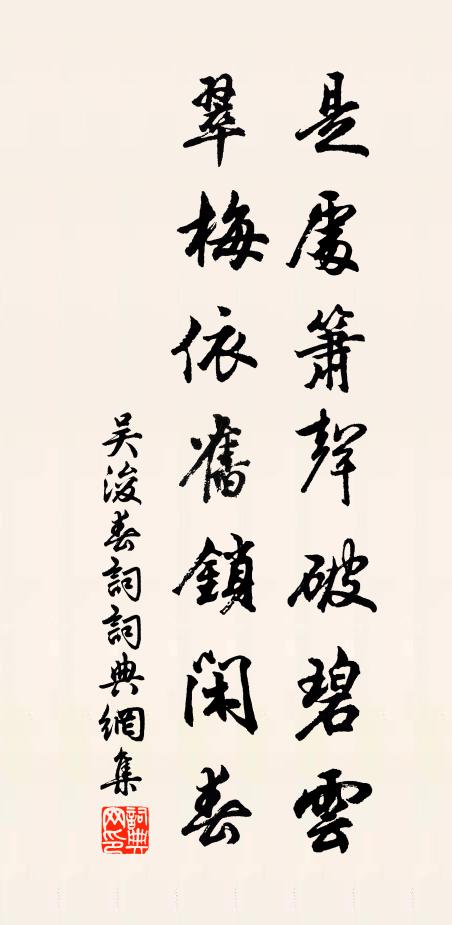 是處簫聲破碧雲
翠梅依舊鎖閑春
吳浚春詞詞典網集
詞典
网印